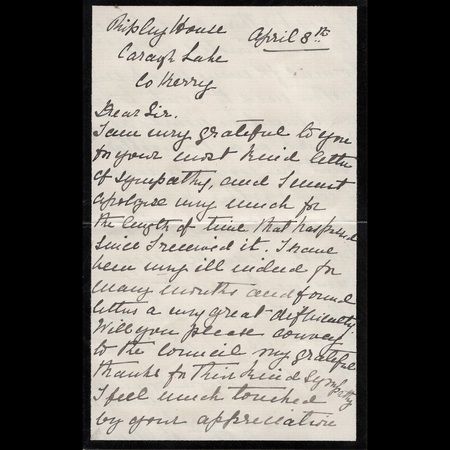 Ripley House
April 8th
Caragh Lake
Co Kerry
Dear Sir.
I am very grateful to you
for your most kind letter
of sympathy, and I must
apologise very much for
the length of time that has passed
since I received it. I have
been very ill indeed for
many months and found
letters a very great difficulty.
Will you please convey
to the council my grateful
thanks for their kind sympathy
I feel much touched
by your appreciation